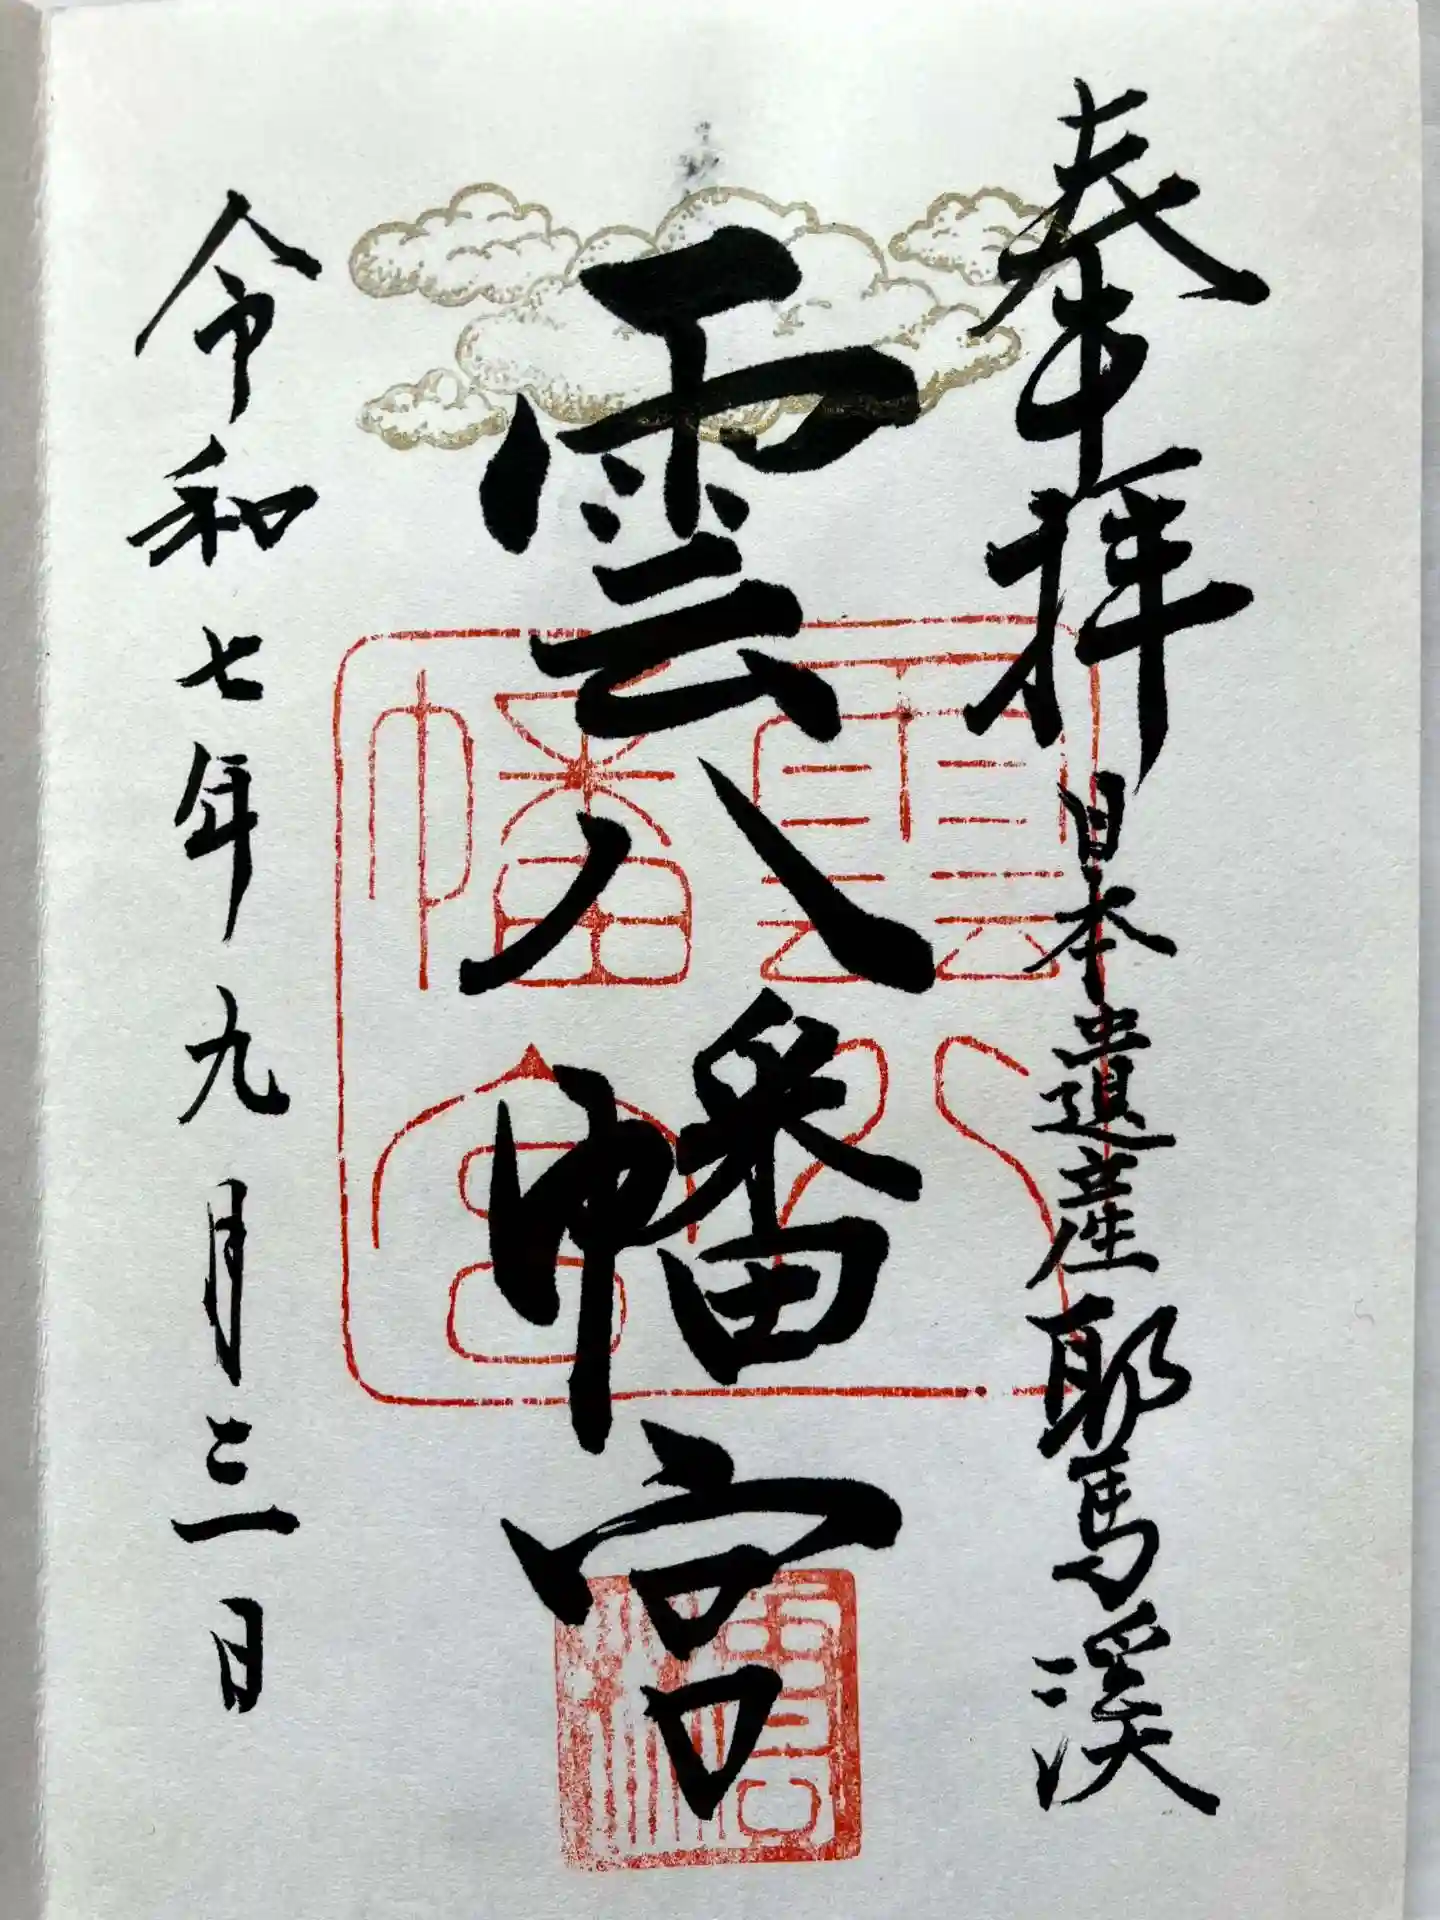 奉拝 日本遺産 耶馬溪
雲八幡宮
令和七年九月三日
雲八幡宮